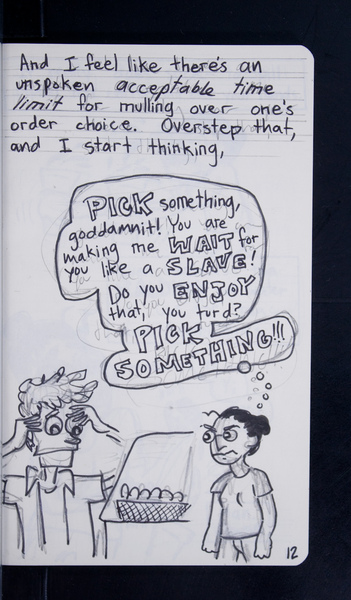 And I feel like there's an
unspoken acceptable time
limit for mulling over one's
order choice. Overstep that,
and I start thinking,
PICK something,
goddamnit! You are
making me WAIT for
you like a SLAVE!
Do you ENJOY
that, you turd?
PICK
SOMETHING!!!
12